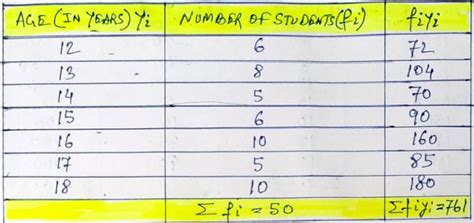 AGE (IN YEARS) yi NUMBER OF STUDENTS (fi) fiyi
12 6 72
13 8 104
14 5 70
15 6 90
16 10 160
17 5 85
18 10 180
Σ fi = 50 Σfiyi = 761